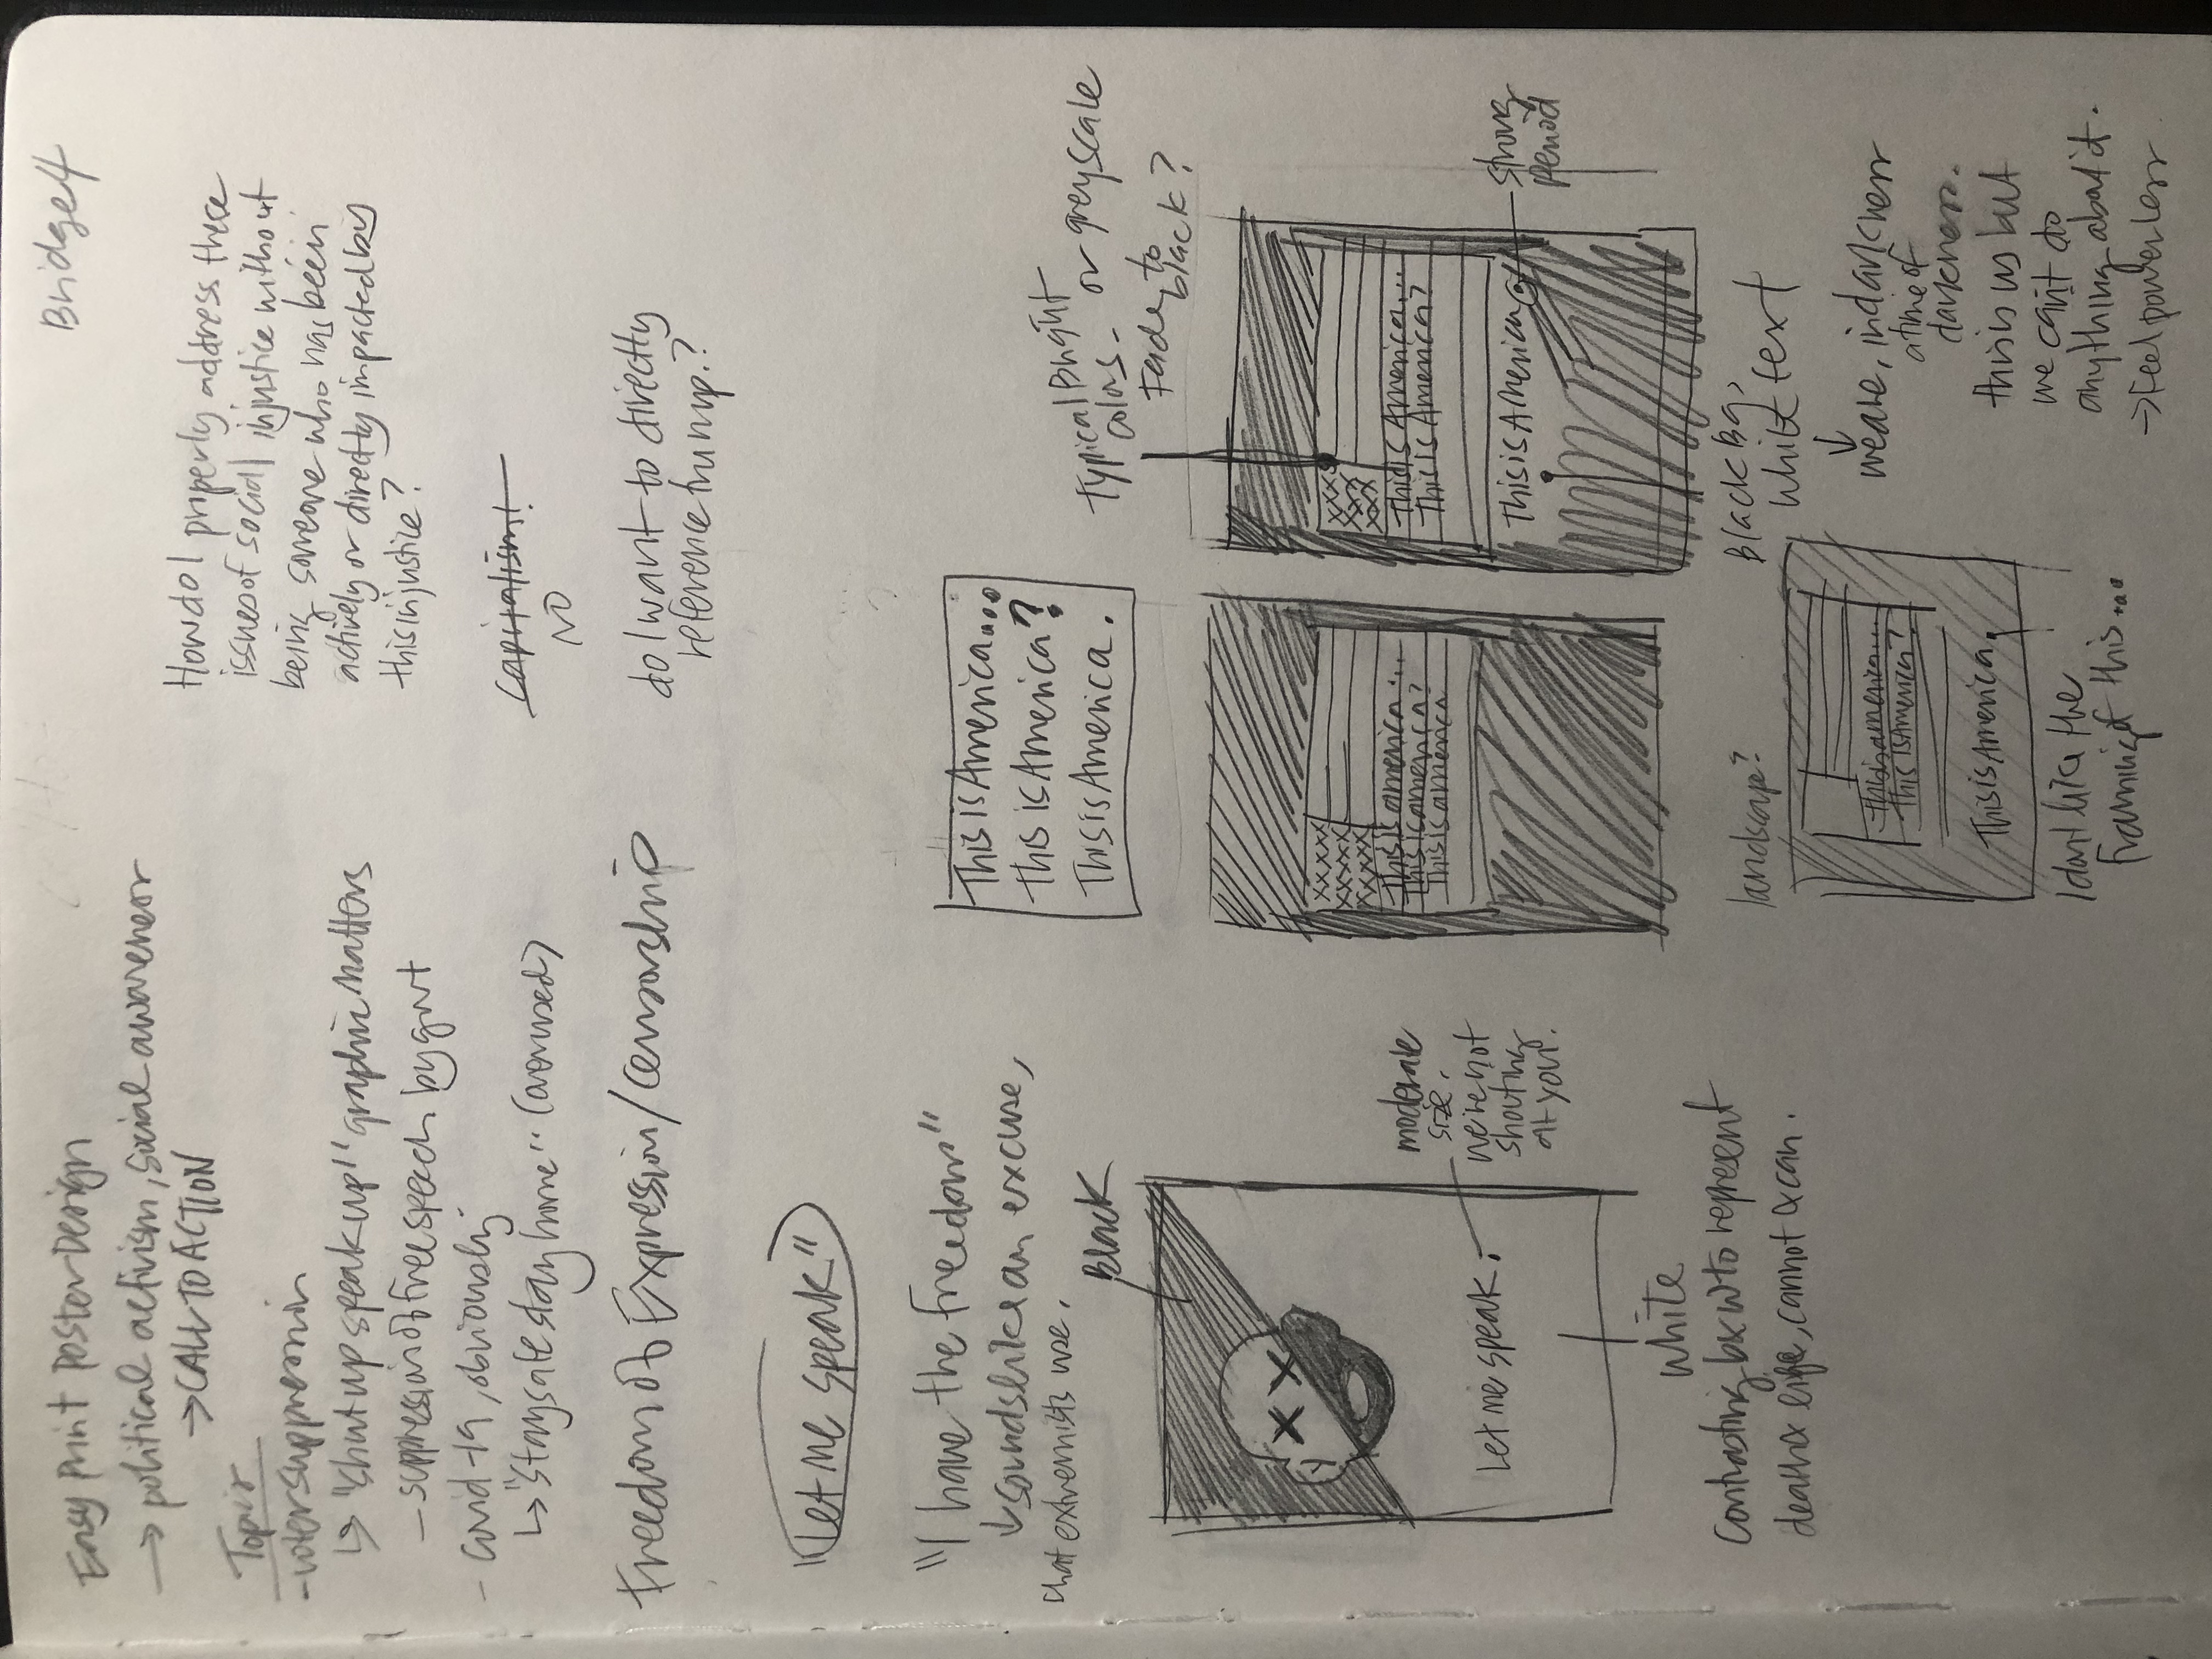 Bridge 4
Easy Print Poster Design
→ political activism, social awareness
→ CALL TO ACTION
Topics
- voter suppression
↳ "shut up speak up" graphic matters
- suppression of free speech by govt
- Covid-19, obviously
↳ "stay safe stay home" (overused)
Freedom of Expression/Censorship
How do I properly address these
issues of social injustice without
being someone who has been
actively or directly impacted by
this injustice?
Capitalism!
NO
do I want to directly
reference trump.?
"Let me speak"
"I have the freedom"
↓ sounds like an excuse,
that extremists use.
Black
Let me speak.
moderate
size.
we're not
shouting
at you.
White
Contrasting b&w to represent
death & life, cannot & can.
This is America...
This is America?
This is America.
Typical Bright
colors -
or greyscale
Fade to
black?
XXXXX
XXXXX
XXXXX
This is america...
This is america?
This is america
XXXX
XXX
XXX
This is America...
This is America?
This is America.
strong
period
landscape?
This is america...
This is America?
This is America.
I dont like the
framing of this...
Black Bg,
White text
↓
we are, in darkness
a time of
darkness.
this is us but
we can't do
anything about it.
→ Feel powerless